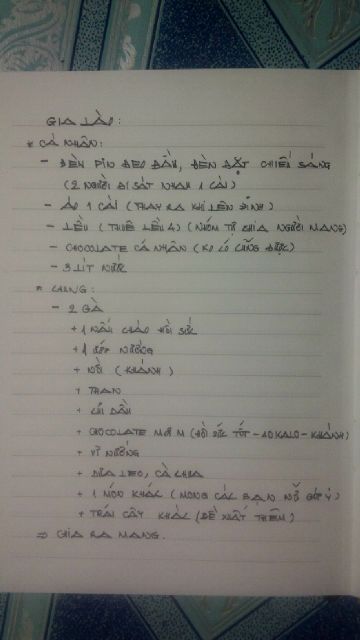 GIA LÀO:
* CÁ NHÂN:
- ĐÈN PIN ĐEO ĐẦU, ĐÈN ĐẶT CHIẾU SÁNG
(2 NGƯỜI ĐI SÁT NHAU 1 CÁI)
- ÁO 1 CÁI (THAY RA KHI LÊN ĐỈNH)
- LỀU (THUÊ LỀU 4) (NHÓM TỰ CHIA NGƯỜI MANG)
- CHOCOLATE CÁ NHÂN (KO CÓ CŨNG ĐƯỢC)
- 3 LÍT NƯỚC
* CHUNG:
- 2 GÀ
+ 1 NẤU CHÁO HỒI SỨC
+ 1 NƯỚNG
+ NỒI (KHÁNH)
+ THAN
+ CỦI DẦU
+ CHOCOLATE M&M (HỒI SỨC TỐT - 40KALO - KHÁNH)
+ VỈ NƯỚNG
+ DƯA LEO, CÀ CHUA
+ 1 MÓN KHÁC (MONG CÁC BẠN NỮ GÓP Ý)
+ TRÁI CÂY KHÁC (ĐỀ XUẤT THÊM)
=> CHIA RA MANG.